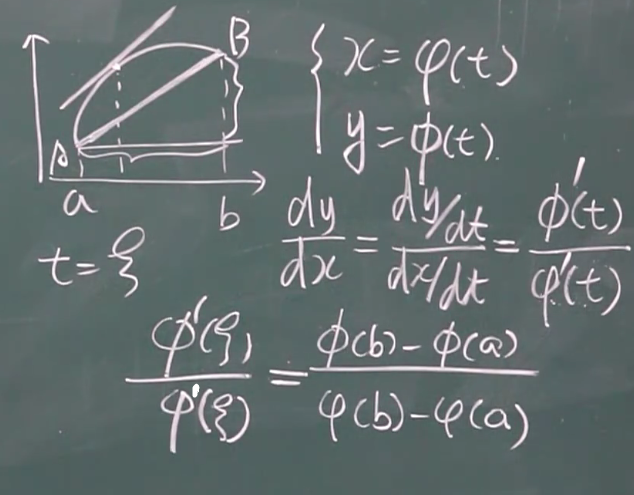 B
A
a b
x = φ(t)
y = ϕ(t)
t = ξ
dy/dx = (dy/dt)/(dx/dt) = ϕ'(t)/φ'(t)
ϕ'(ξ)/φ'(ξ) = (ϕ(b) - ϕ(a))/(φ(b) - φ(a))